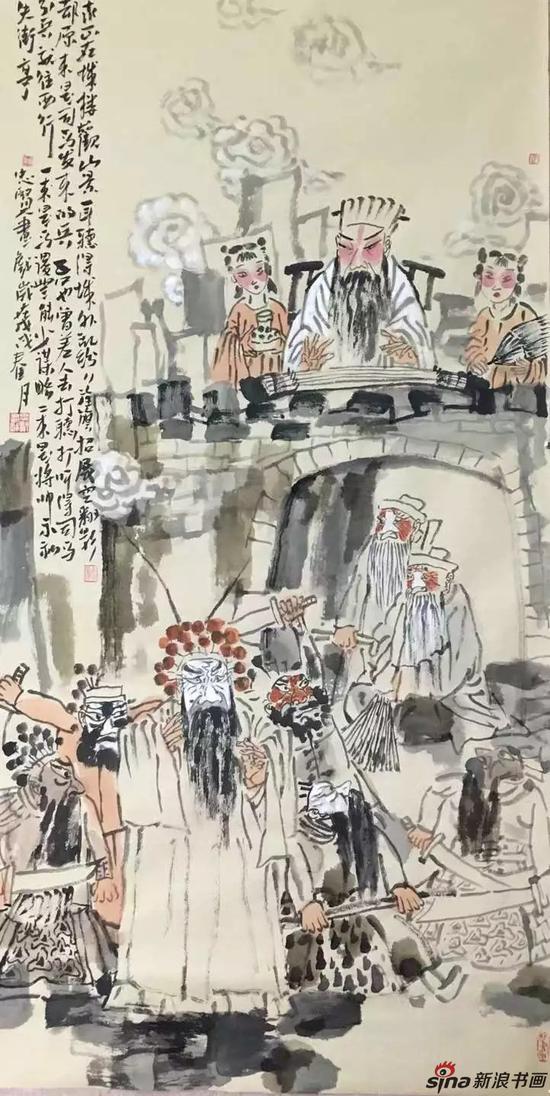 我正在城楼觀山景耳聽得城外乱纷纷旌旗招展空翻影
却原来是司马发来的兵我也曾差人去打聽打听得司马
引兵就往西行一来是马谡無能少谋略二来是将帅不和
失街亭
畫戲歲戊戌春月
sina新浪书画